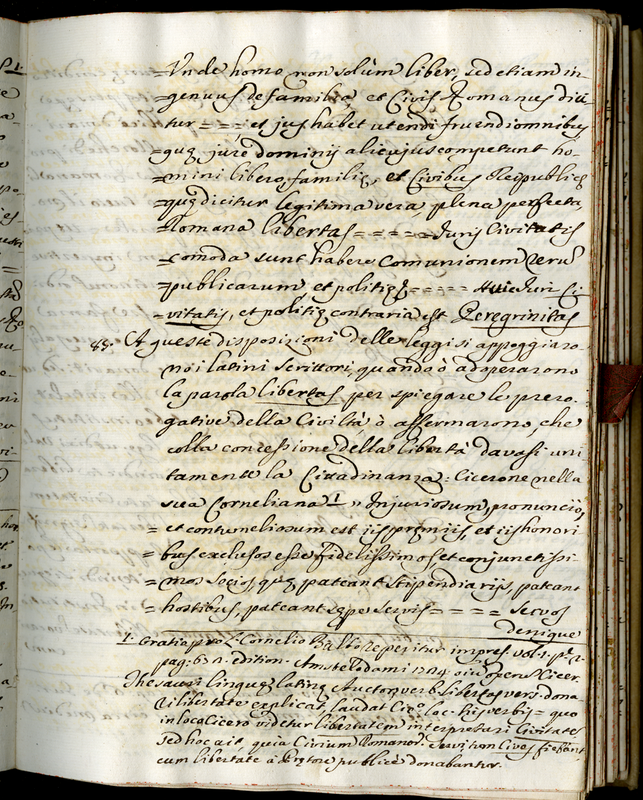 =Vnde homo non solùm liber, sed etiam in-
=genuus de familia et Civis Romanus dici-
tur = = = et jus habet utendi fruendi omnibus
=quę jure dominij alicujus competunt ho-
=mini liberę familię, et Civibus Reipublicę
=quę dicitur legitima vera, plena perfecta
Romana libertas = = = = = Juris Civitatis
=comoda sunt habere Comunionem rerū
=publicarum et politię = = = = = Huic Juri Ci-
=vitatis, et politię contraria est Peregrinitas
85. A queste disposizioni delle leggi si appoggiaro
no i latini Scrittori, quando ò adoperarono
la parola libertas per spiegare le prero-
gative della Civiltà ò affermarono, che
colla concessione della libertà davasi uni
tamente la Cittadinanza: Cicerone nella
sua Corneliana 1 " Injuriosum, pronunciò,
=et contumeliosum est ijs pręmijs, et ijs honori
=bus exclusos esse fidelissimos et conjunctissi-
=mos socios, quę pateant stipendiarijs, pateant
=hostibus, pateant sępe servis = = = = Servos
denique
1. Gratia pro L. Cornelio Balbo reperitur impres. vol. 1. p.
pag. edition. Amstelodami 1724. oiū operū Cicer.
Thesauri linguę latinę Auctor verb. libertas vers. dona
ri libertate explicat, laudat Cic. loc. his verbis = quo
in loco Cicero videtur libertatem interpretari Civitatē
sed hoc ait, quia Civium Romanor. Servi non Cives fiebant
cum libertate à Prętore publicè donabantur.